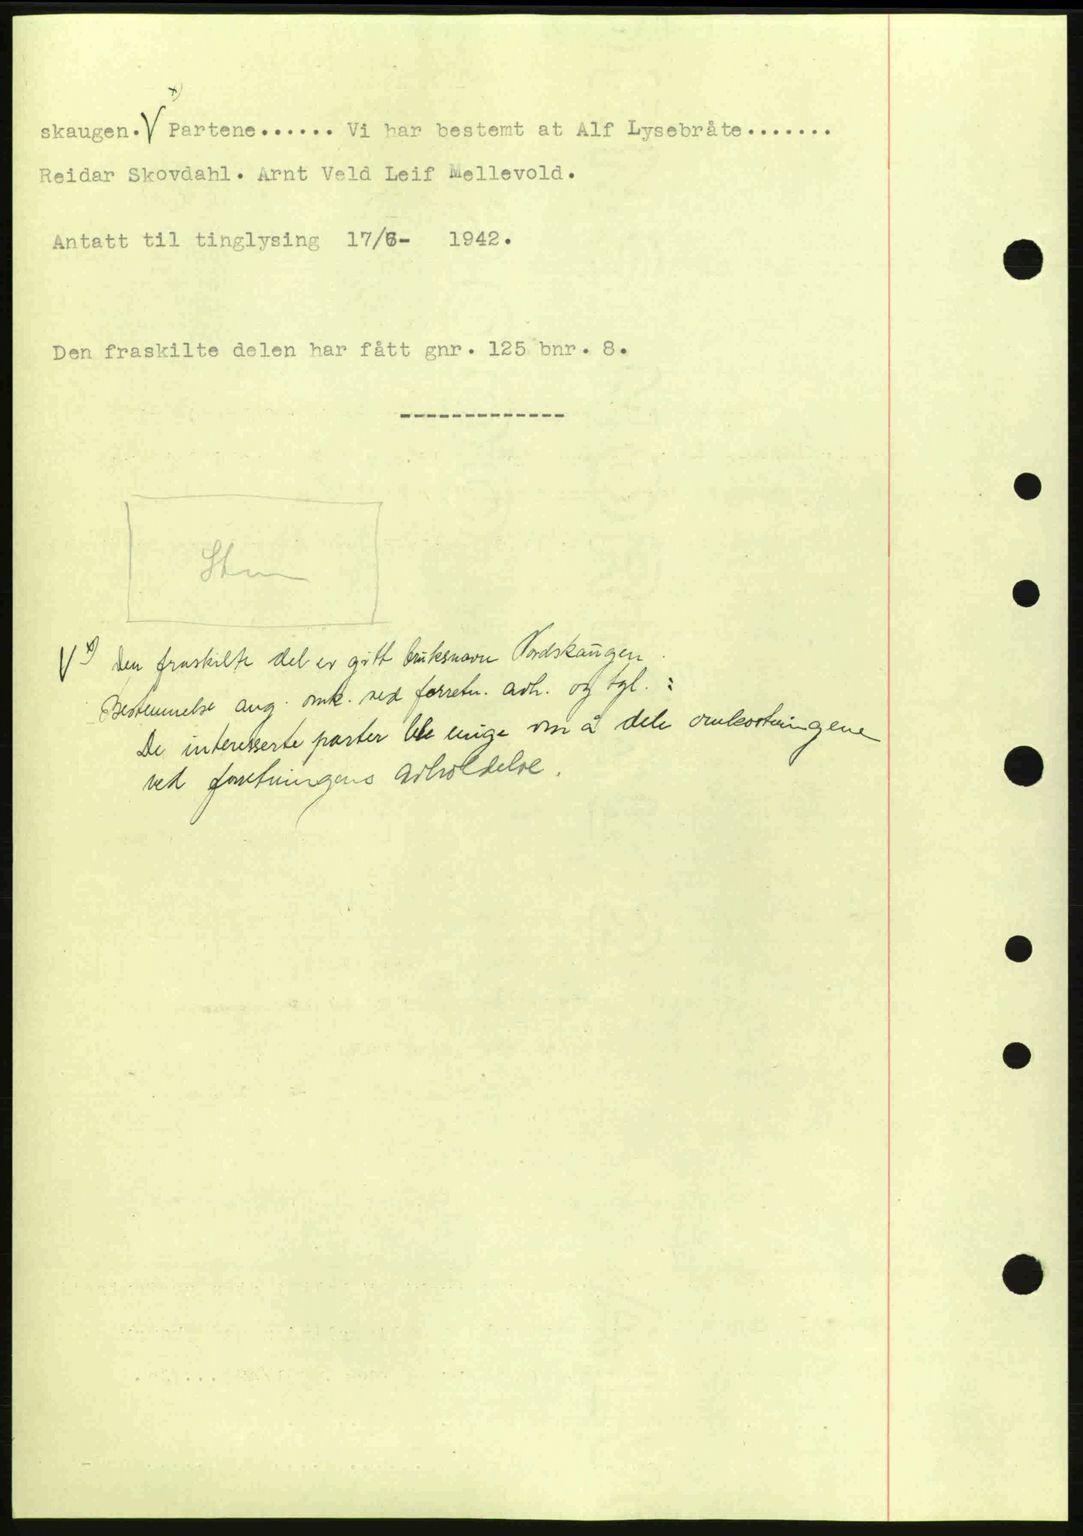 x)
skaugen. V Partene...... Vi har bestemt at Alf Lysebråte.......
Reidar Skovdahl. Arnt Veld Leif Mellevold.
Antatt til tinglysing 17/6- 1942.
Den fraskilte delen har fått gnr. 125 bnr. 8.
-------------
V x) Den fraskilte del er gitt bruksnavn Nordskaugen.
Bestemmelse ang. omk. ved forretn. avh. og tgl. :
De interesserte parter ble enige om å dele omkostningene
ved forretningens avholdelse.